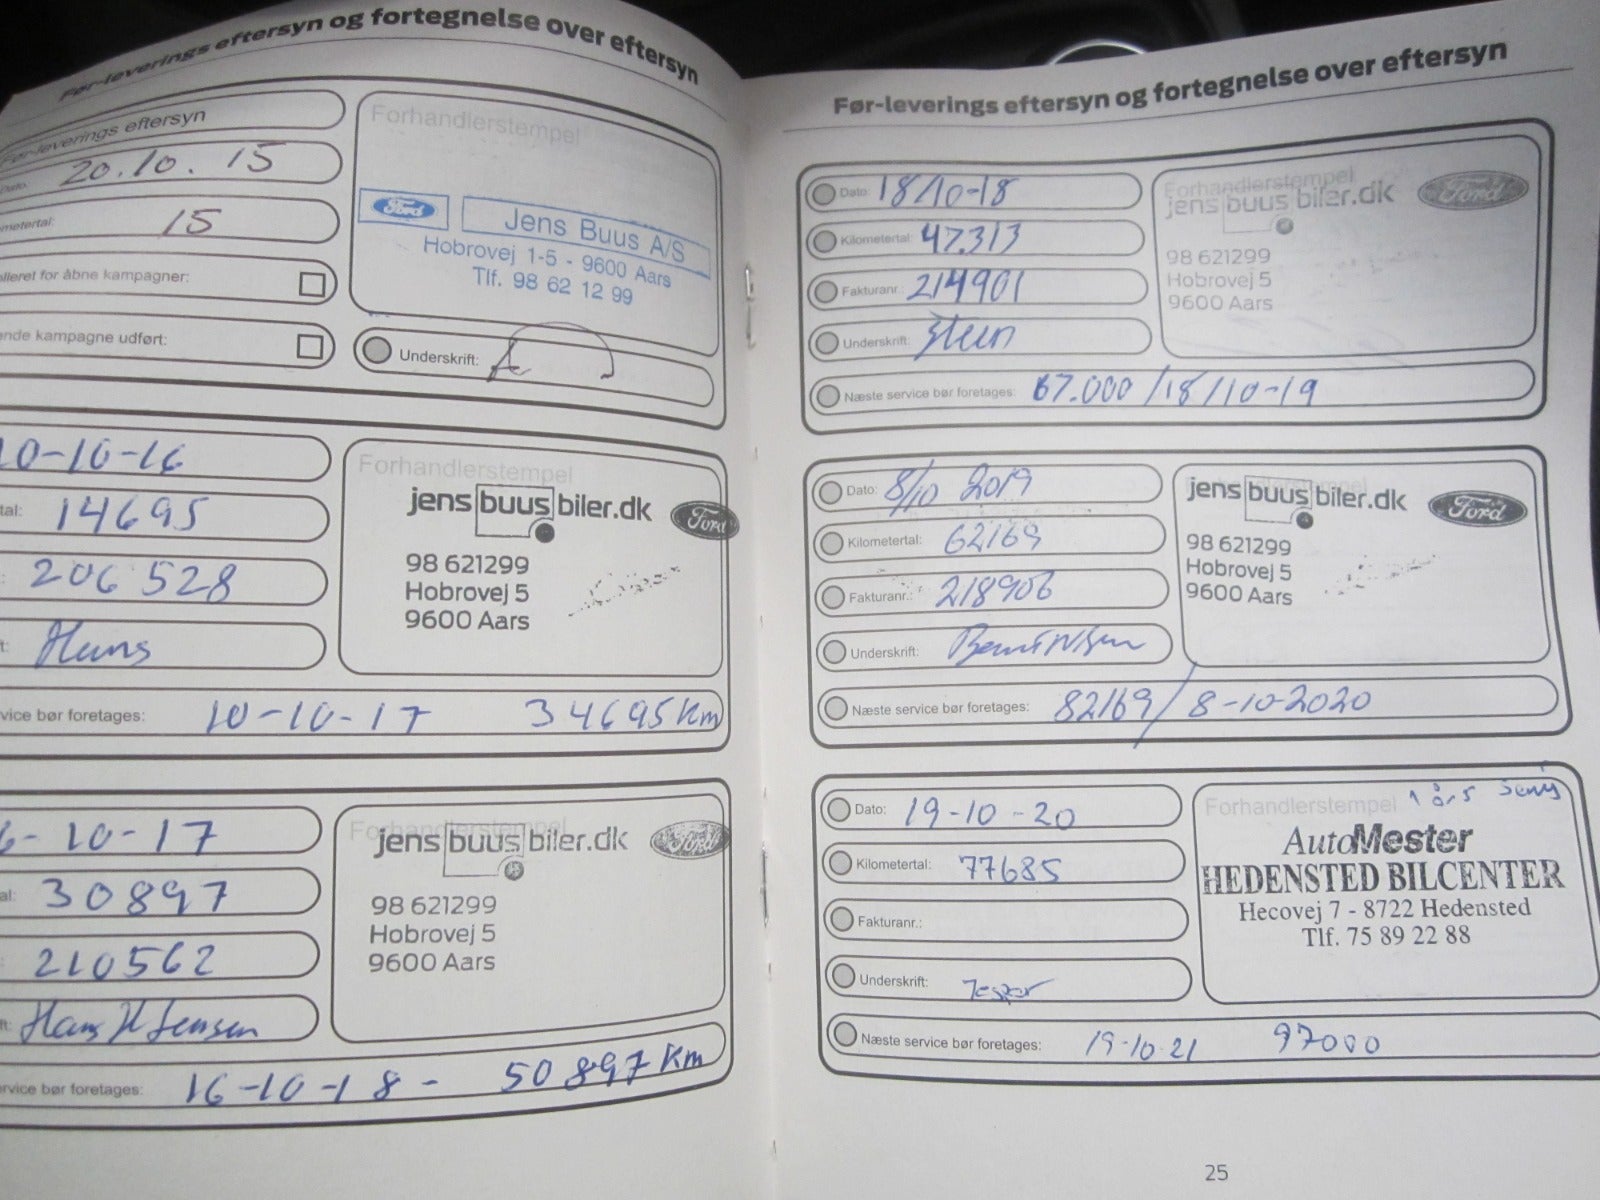 Før-leverings eftersyn og fortegnelse over eftersyn
Før-leverings eftersyn
Dato: 20.10.15
ometertal: 15
olleret for åbne kampagner:
ende kampagne udført:
Forhandlerstempel
Ford Jens Buus A/S
Hobrovej 1-5 - 9600 Aars
Tlf. 98 62 12 99
Underskrift:
10-10-16
tal: 14695
: 206 528
t: Hans
Forhandlerstempel
jens buus biler.dk Ford
98 621299
Hobrovej 5
9600 Aars
vice bør foretages: 10-10-17 34695 Km
6-10-17
al: 30897
: 210562
ft: Hans H Jensen
Forhandlerstempel
jens buus biler.dk Ford
98 621299
Hobrovej 5
9600 Aars
rvice bør foretages: 16-10-18- 50897 Km
Før-leverings eftersyn og fortegnelse over eftersyn
Dato: 18/10-18
Kilometertal: 47.313
Fakturanr.: 214901
Underskrift: Steen
Forhandlerstempel
jens buus biler.dk Ford
98 621299
Hobrovej 5
9600 Aars
Næste service bør foretages: 67.000/18/10-19
Dato: 8/10 2019
Kilometertal: 62169
Fakturanr.: 218906
Underskrift:
jens buus biler.dk Ford
98 621299
Hobrovej 5
9600 Aars
Næste service bør foretages: 82169/8-10-2020
Dato: 19-10-20
Kilometertal: 77685
Fakturanr.:
Underskrift: Jesper
Forhandlerstempel 1 års
AutoMester
HEDENSTED BILCENTER
Hecovej 7 - 8722 Hedensted
Tlf. 75 89 22 88
Næste service bør foretages: 19-10-21 97000
25